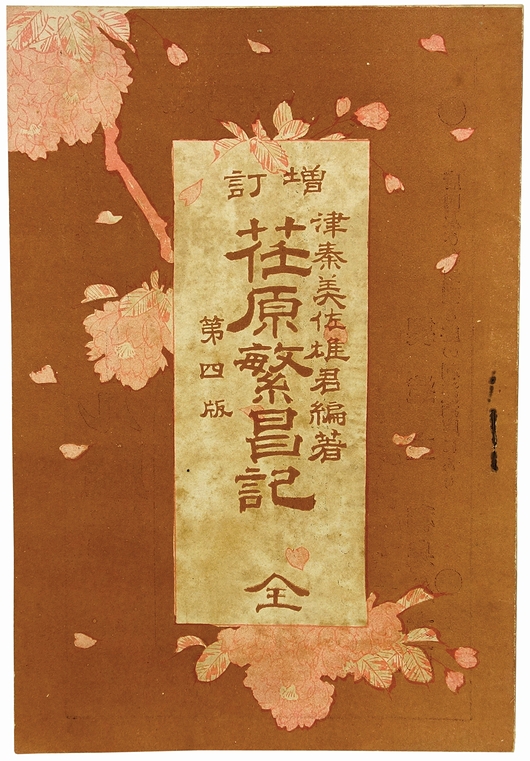 増訂
津秦美佐雄君編著
荏原繁昌記
全
第四版